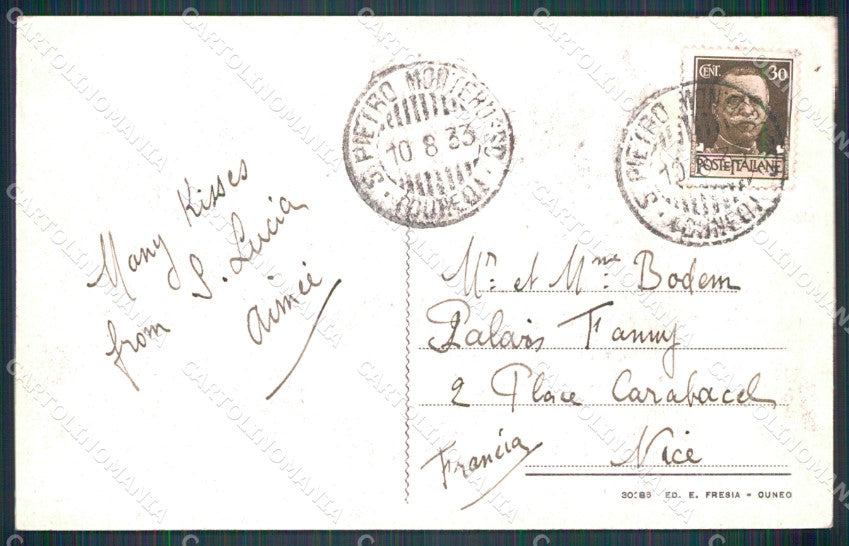 Many Kisses
from S. Lucia
Aimée
S. PIETRO MONTEROSSO
10 8 33
(CUNEO)
CENT. 30
POSTE ITALIANE
S. PIETRO MON
10
(CUNEO)
Mr. et Mme Bodem
Palais Fanny
2 Place Carabacel
Nice
Francia
ED. E. FRESIA - CUNEO
CARTOLINOMANIA